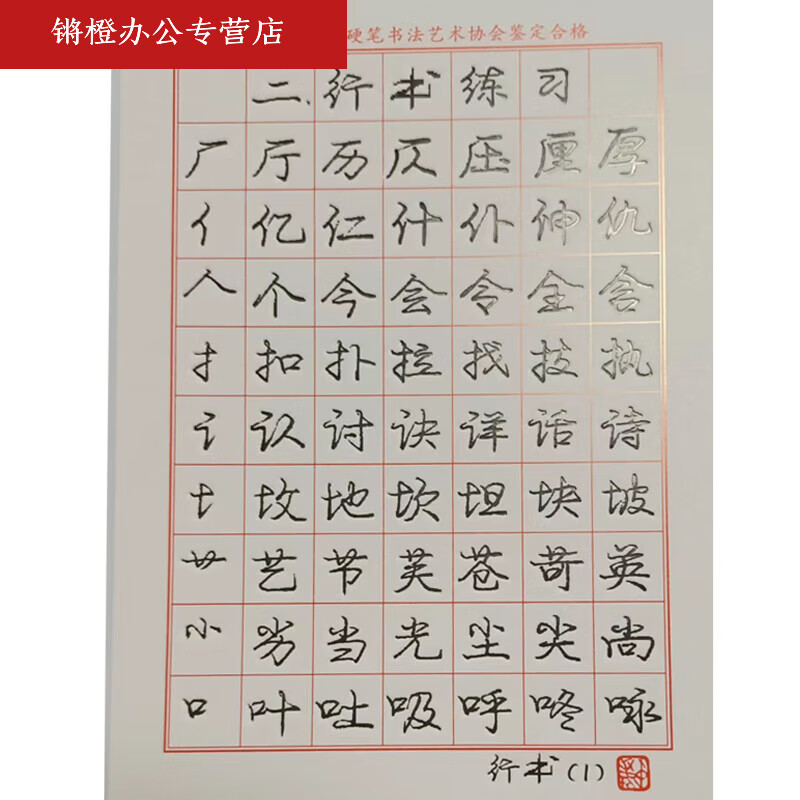 锵橙办公专营店
硬笔书法艺术协会鉴定合格
二、行书练习
厂厅历仄压厘厚
亻亿仁什仆仲仇
人个今会令全含
扌扣扑拉找技执
讠认讨诀详话诗
土坟地坎坦块坡
艹艺节芙苍苛英
⺌劣当光尘尖尚
口叶吐吸呼咚咏
行书(1)